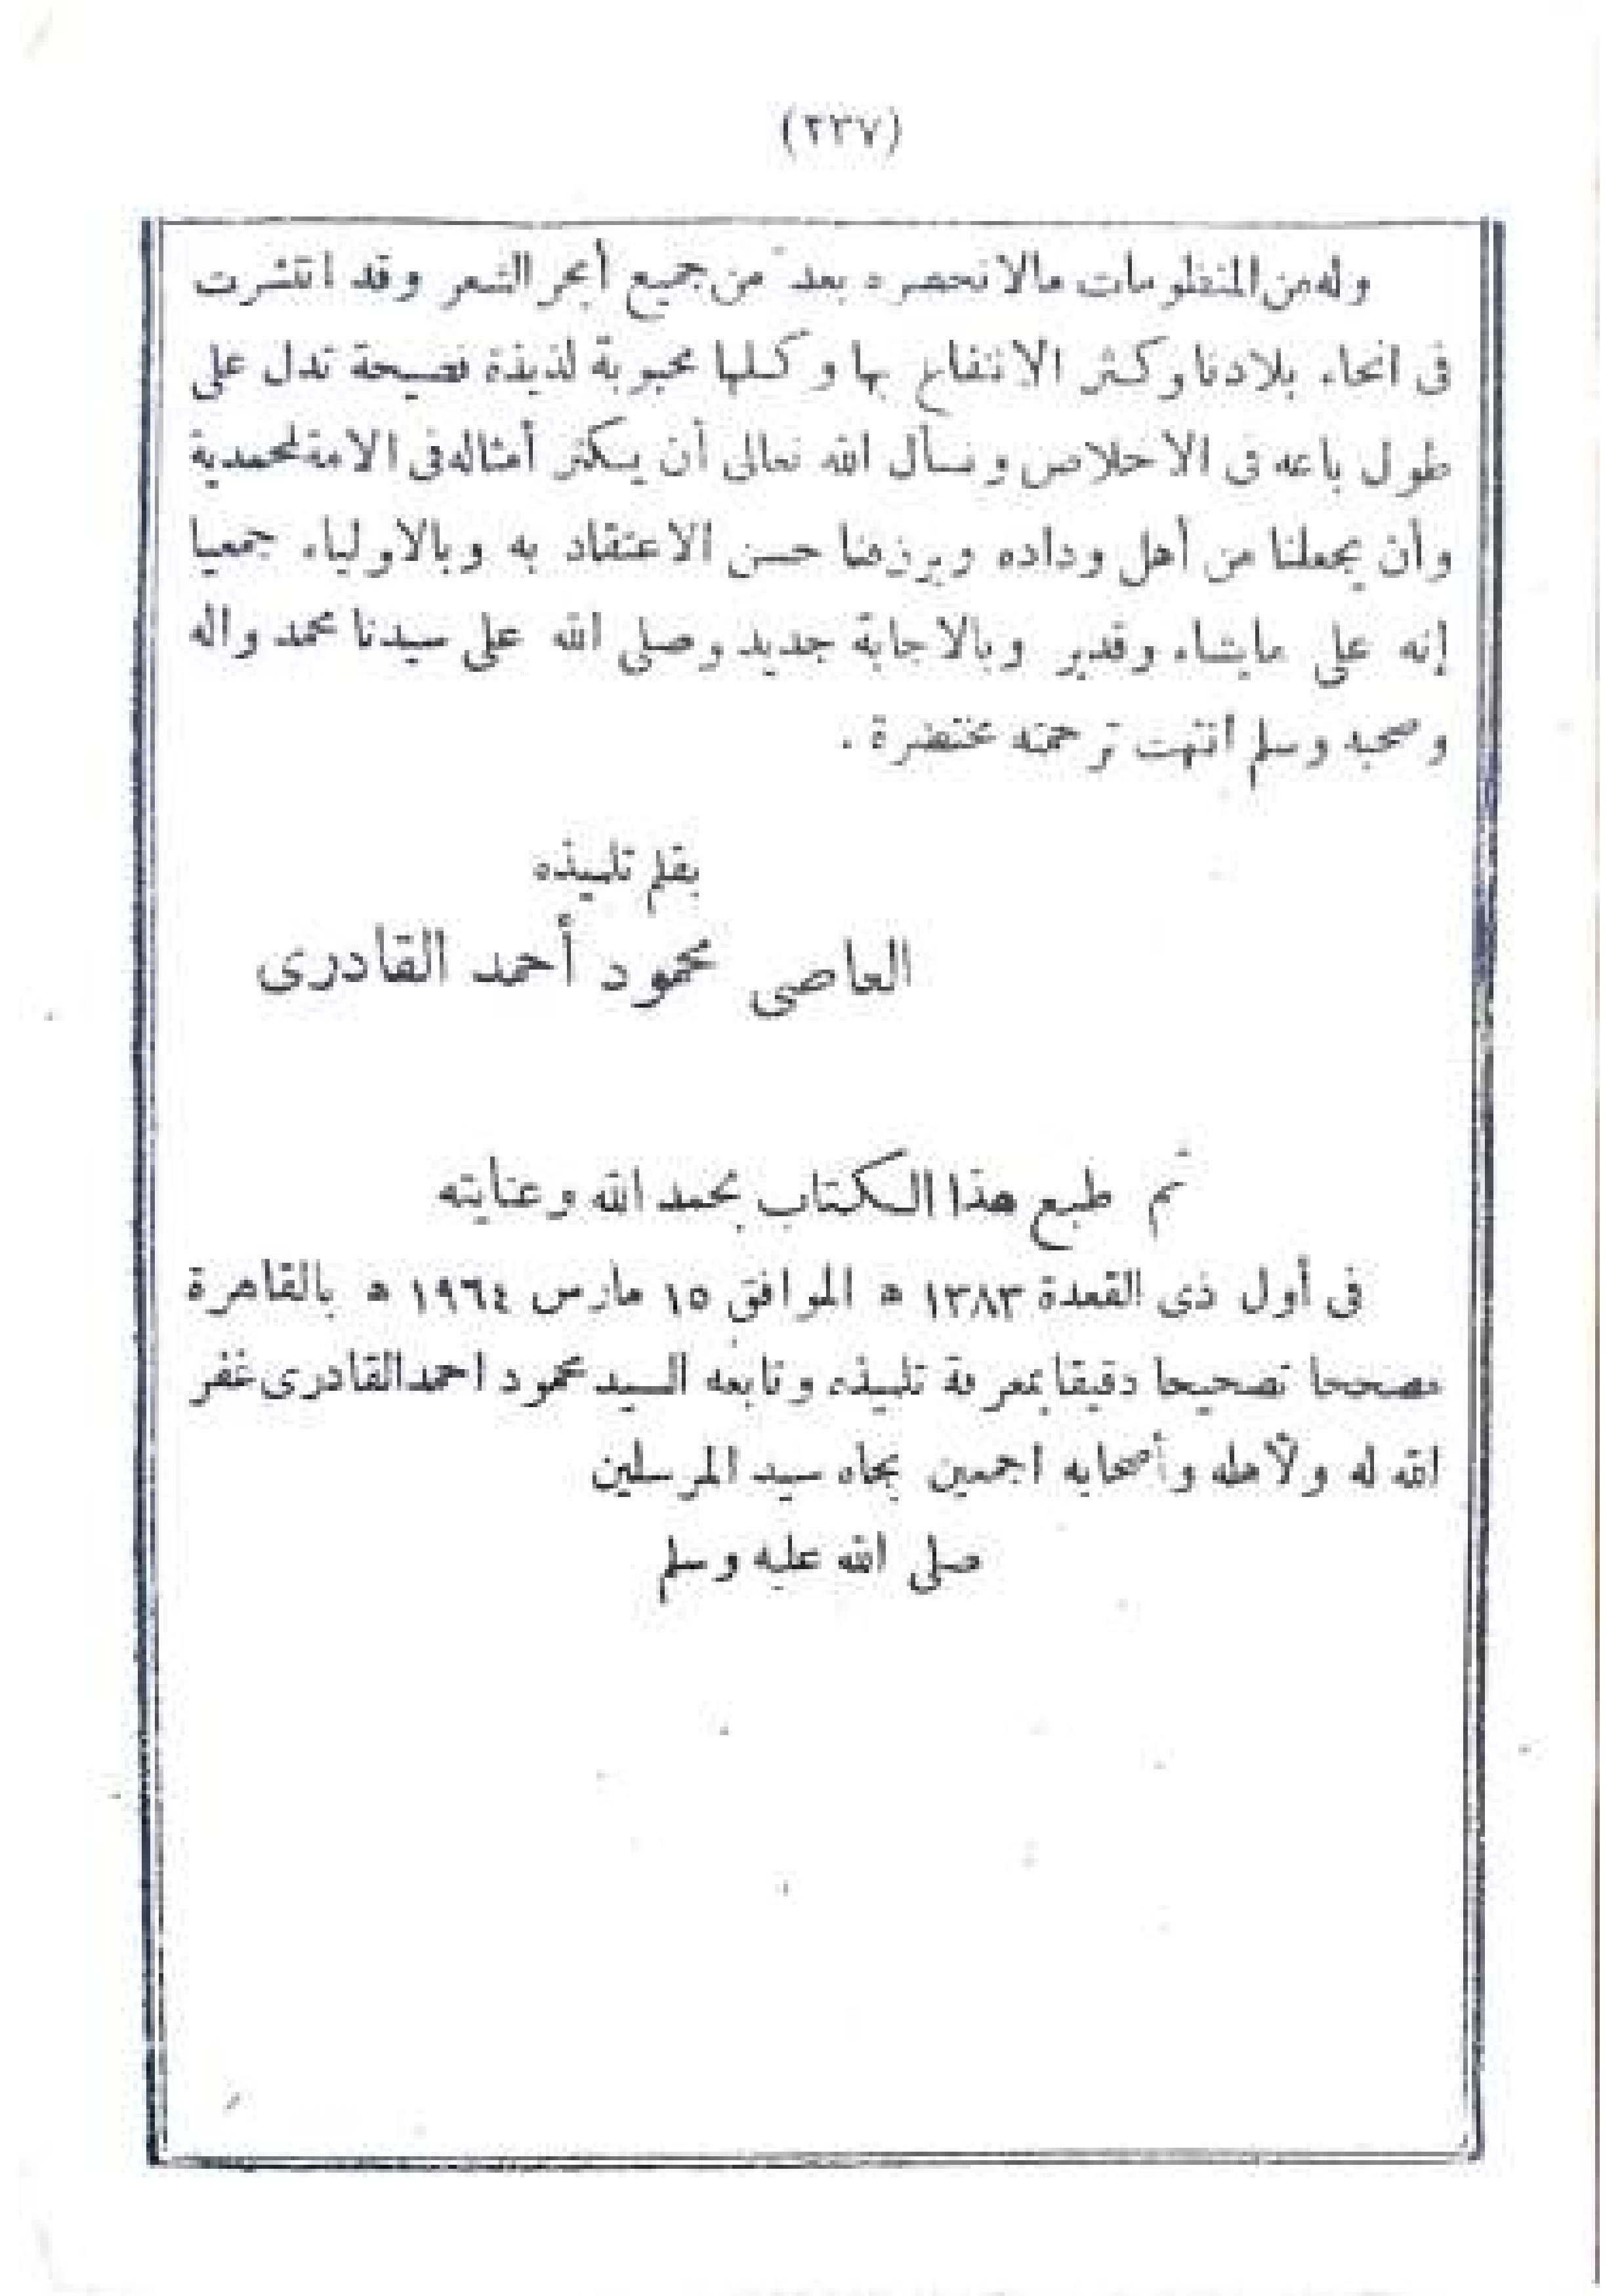 (٢٣٧)
وله من المنظومات مالا نحصره بعد من جميع أبحر الشعر وقد انتشرت
فى انحاء بلادنا وكثر الانتفاع بها وكلها محبوبة لذيذة فصيحة تدل على
طول باعه فى الاخلاص ونسأل الله تعالى أن يكثر أمثاله فى الامة المحمدية
وأن يجعلنا من أهل وداده ويرزقنا حسن الاعتقاد به وبالاولياء جمعيا
إنه على مايشاء وقدير وبالاجابة جديد وصلى الله على سيدنا محمد واله
وصحبه وسلم انتهت ترحمته مختضرة .
بقلم تلميذه
العاصى محمود أحمد القادرى
تم طبع هذا الكتاب بحمد الله وعنايته
فى أول ذى القعدة ١٣٨٣ ه الموافق ١٥ مارس ١٩٦٤ ه بالقاهرة
مصححا تصحيحا دقيقا بمعرفة تلميذه وتابعه السيد محمود احمد القادرى غفر
الله له ولأهله وأصحابه اجمعين بجاه سيد المرسلين
صلى الله عليه وسلم